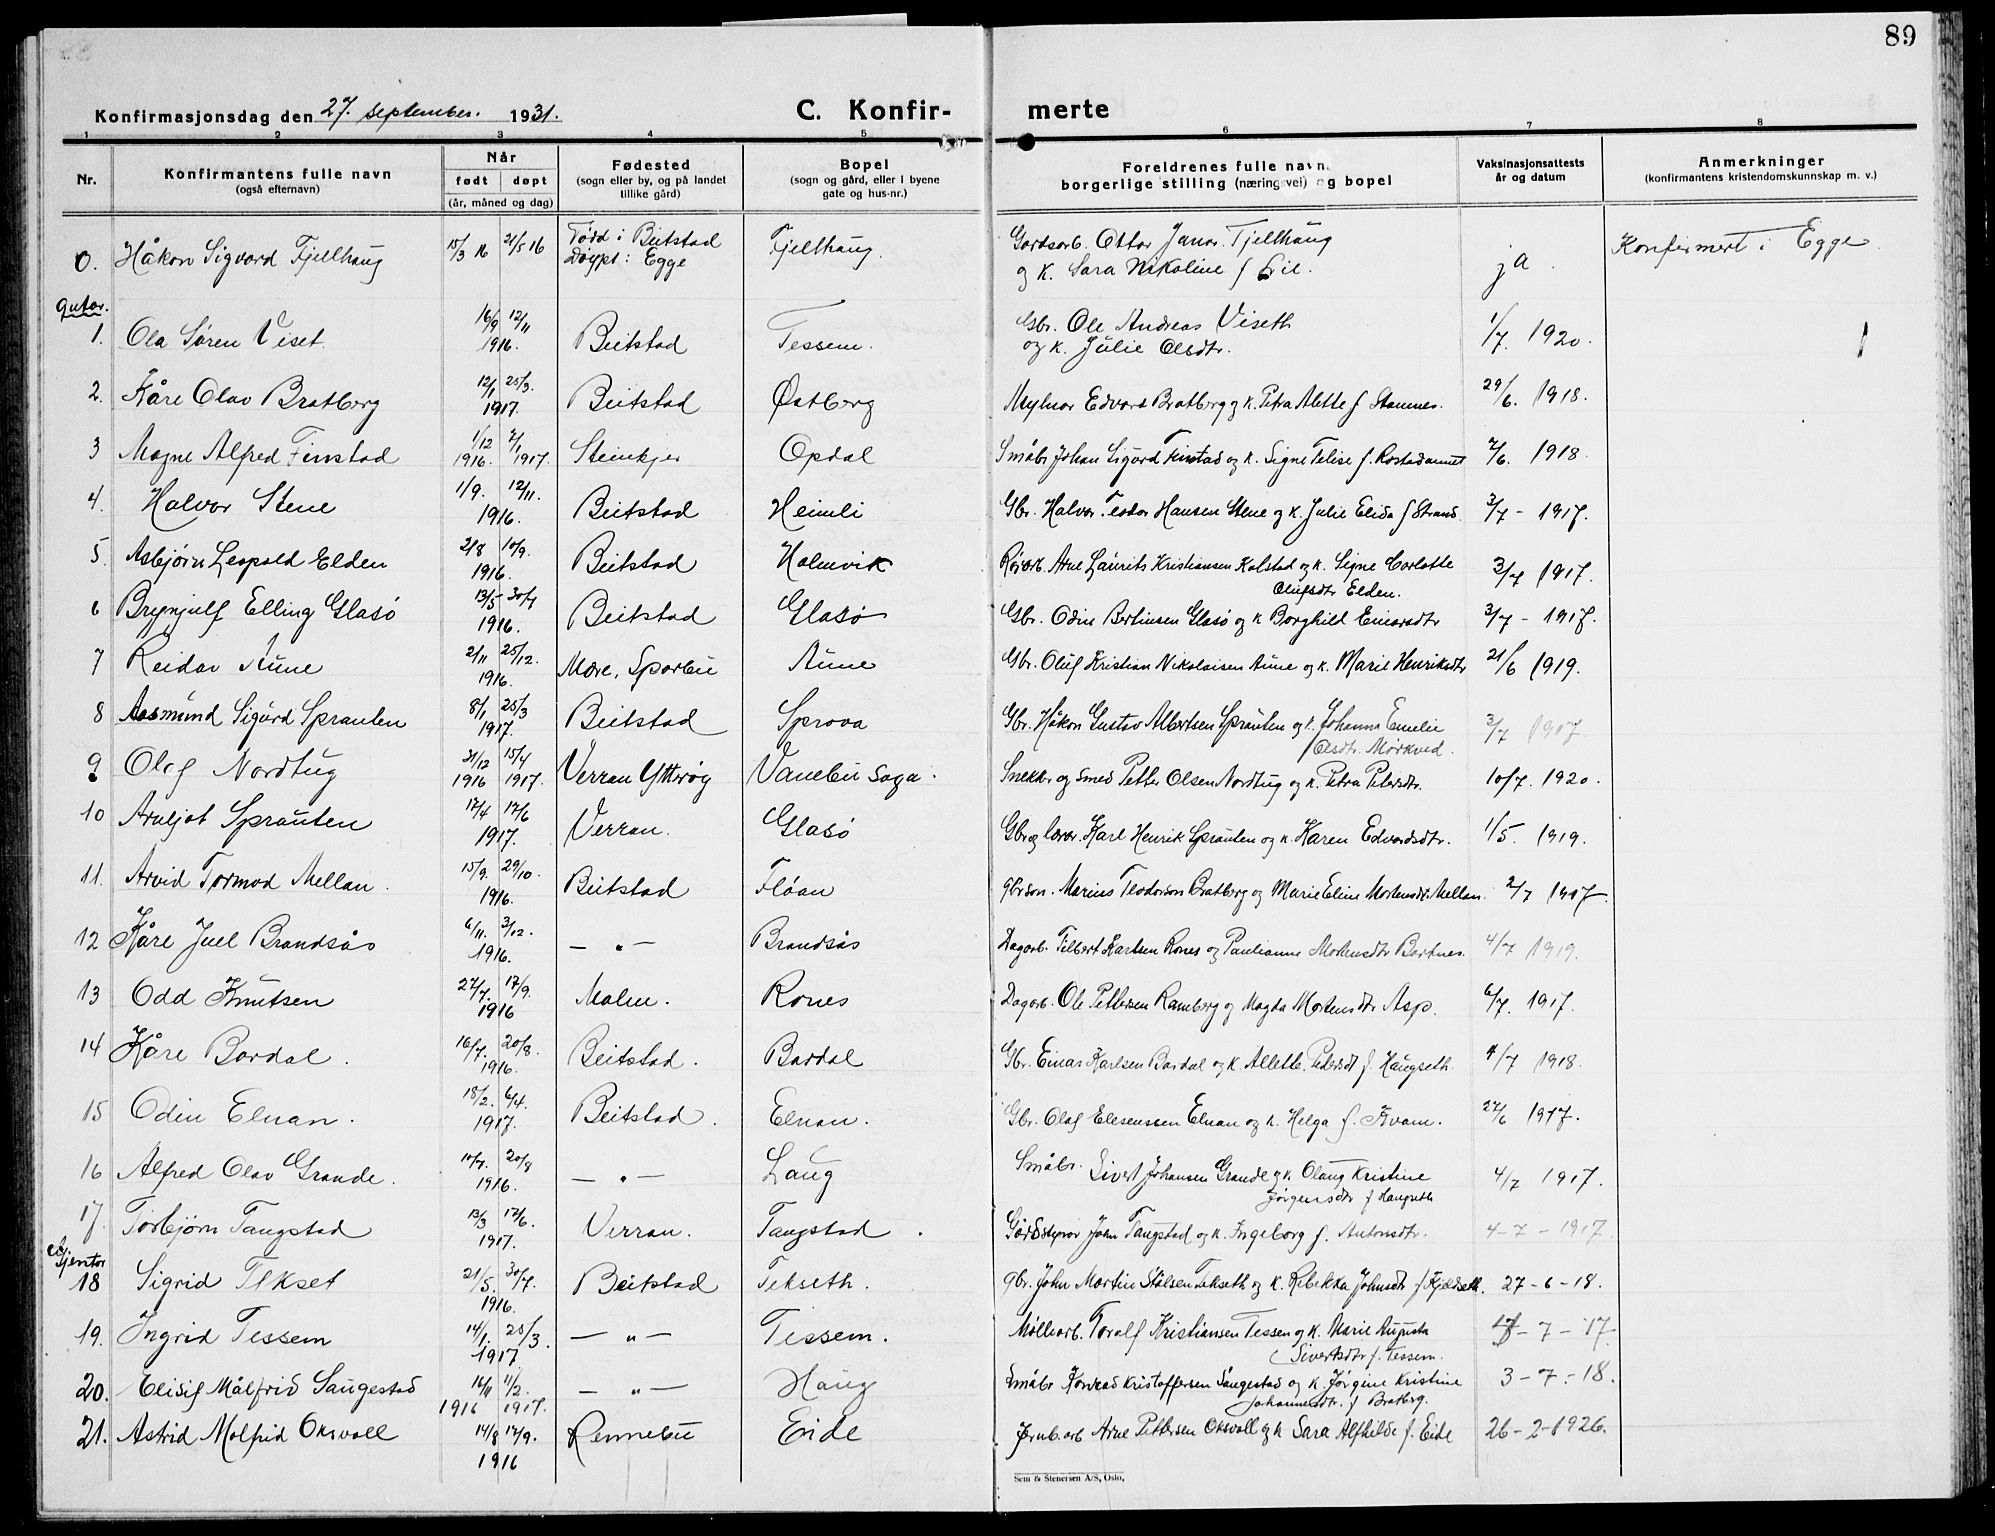 89
Konfirmasjonsdag den 27. september. 1931.
C. Konfir- merte
1 2 3 4 5 6 7 8
Nr.
Konfirmantens fulle navn
(også efternavn)
Når
født døpt
(år, måned og dag)
Fødested
(sogn eller by, og på landet
tillike gård)
Bopel
(sogn og gård, eller i byene
gate og hus-nr.)
Foreldrenes fulle navn,
borgerlige stilling (næringsvei) og bopel
Vaksinasjonsattests
år og datum
Anmerkninger
(konfirmantens kristendomskunnskap m. v.)
0. Håkon Sigvard Fjellhaug 15/3 16 21/5 16 Født i Beitstad Fjellhaug. Gardsarb. Ottar Janar. Fjellhaug ja. Konfirmert i Egge.
Døypt: Egge og k. Sara Nikoline f. Lie.
Gutar.
1. Ola Søren Viset 16/9 12/11 Beitstad Tessem. Gbr. Ole Andreas Viseth 1/7. 1920.
1916. og k. Julie Olsdtr.
2. Kåre Olav Bratberg 12/1 25/3. Beitstad Østberg Mylnar Edvard Bratberg og k. Petra Alette f. Stamnes. 29/6. 1918.
1917.
3 Magne Alfred Finstad 1/12 7/1 Steinkjer Opdal Småbr. Johan Sigurd Finstad og k. Signe Telise f. Rostadaunet 7/6. 1918.
1916. 1917.
4. Halvor Stene 1/9. 12/11. Beitstad Heimli Gbr. Halvor Teodor Hansen Stene og k. Julie Elida f. Strand. 3/7 - 1917.
1916.
5. Asbjørn Leopold Elden 2/8 10/9. Beitstad Holmvik Arne Laurits Kristiansen Kolstad og k. Signe Carlotte 3/7 1917.
1916. Olufsdtr Elden.
6 Brynjulf Elling Glasø 13/5 30/7 Beitstad Glasø Gbr. Odin Bertinsen Glasø og k Borghild Einarsdtr 3/7 - 1917.
1916.
7 Reidar Aune 2/11 25/12. Mære, Sparbu Aune Gbr. Oluf Kristian Nikolaisen Aune og k. Marie Henriksdtr 21/6 1919.
1916.
8 Aasmund Sigurd Sprauten 8/1 25/3 Beitstad Sprova Gbr. Håkon Gustav Albertsen Sprauten og k. Johanna Emelie 3/7 1917
1917. Olsdtr. Mørkved.
9 Olaf Nordtug 31/12 15/4 Verran Ytterøy Vanebu Saga. Snekker og smed Petter Olsen Nordtug og k. Petra Petersdtr. 10/7. 1920.
1916 1917.
10 Arnljot Sprauten 17/4 17/6 Verran. Glasø Gbr. og lærer. Karl Henrik Sprauten og k. Karen Edvardsdtr. 1/5. 1919.
1917.
11. Arvid Tormod Mellan. 15/9. 29/10. Beitstad Flöan gbrson. Marius Teodorson Bratberg og Marie Eline Mortensdtr. Mellan. 2/7 1917.
1916.
12 Kåre Juel Brandsås 6/11. 3/12. — „ — Brandsås Dagarb. Tilbert Karlsen Rones og Paulianne Mortensdtr Bartnes. 4/7 1919.
1916.
13 Odd Knutsen 27/7. 17/9. Malm. Rones Dagarb. Ole Pettersen Ramberg og Magda Mortensdtr Asp. 6/7. 1917.
1916
14 Kåre Bardal. 16/7. 20/8. Beitstad. Bardal Gbr. Einar Karlsen Bardal og k. Allette Pedersdt f. Haugseth. 4/7 1918.
1916.
15 Odin Elnan. 18/2. 6/4. Beitstad. Elnan. Gbr. Olaf Elesenssen Elnan og k. Helga f. Kvam. 27/6 1917.
1917.
16 Alfred Olav Grande. 10/7. 20/8 — „ — Laug Småbr. Sivert Johansen Grande og k. Olaug Kristine 4/7 1917.
1916. Jørgensdtr f Haugseth
17. Torbjørn Tangstad 13/3 17/6. Verran. Tangstad. John Tangstad og k. Ingeborg f. Antonsdtr. 4-7-1917.
1917.
Gjentor
18 Sigrid Tekset 21/5. 30/7. Beitstad Tekseth. gbr. John Martin Stålsen Tekseth og k. Rebekka Johnsdtr f Kjeldseth. 27-6-18.
1916.
19. Ingrid Tessem 14/1. 25/3. — „ — Tessem. Møllearb. Toralf Kristiansen Tessem og k. Marie Augusta 17-7-17
1917 Sivertsdtr f. Tessem.
20. Elisif Målfrid Saugestad 16/11 11/2. — „ — Haug Småbr Konrad Kristoffersen Saugestad og k Jørgine Kristine 3-7-18.
1916 1917. Johannesdtr. f Bratberg.
21. Astrid Molfrid Oksvoll 14/8 17/9. Rennebu Eide Jernb. arb Arne Pettersen Oksvoll og k Sara Alfhilde f. Eide 26-2-1926.
1916
Sem & Stenersen A/S, Oslo.